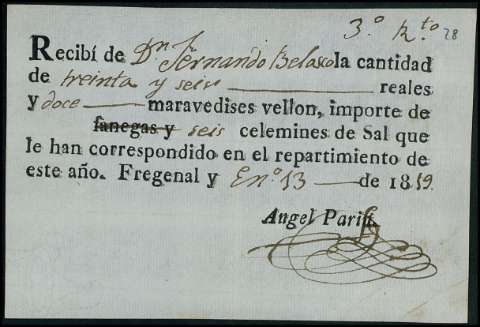 3.º R.to 28
Recibí de Dn Fernando Belasco la cantidad
de treinta y seis reales
y doce maravedises vellon, importe de
fanegas y seis celemines de Sal que
le han correspondido en el repartimiento de
este año. Fregenal y En.º 13 de 1819.
Angel Parin